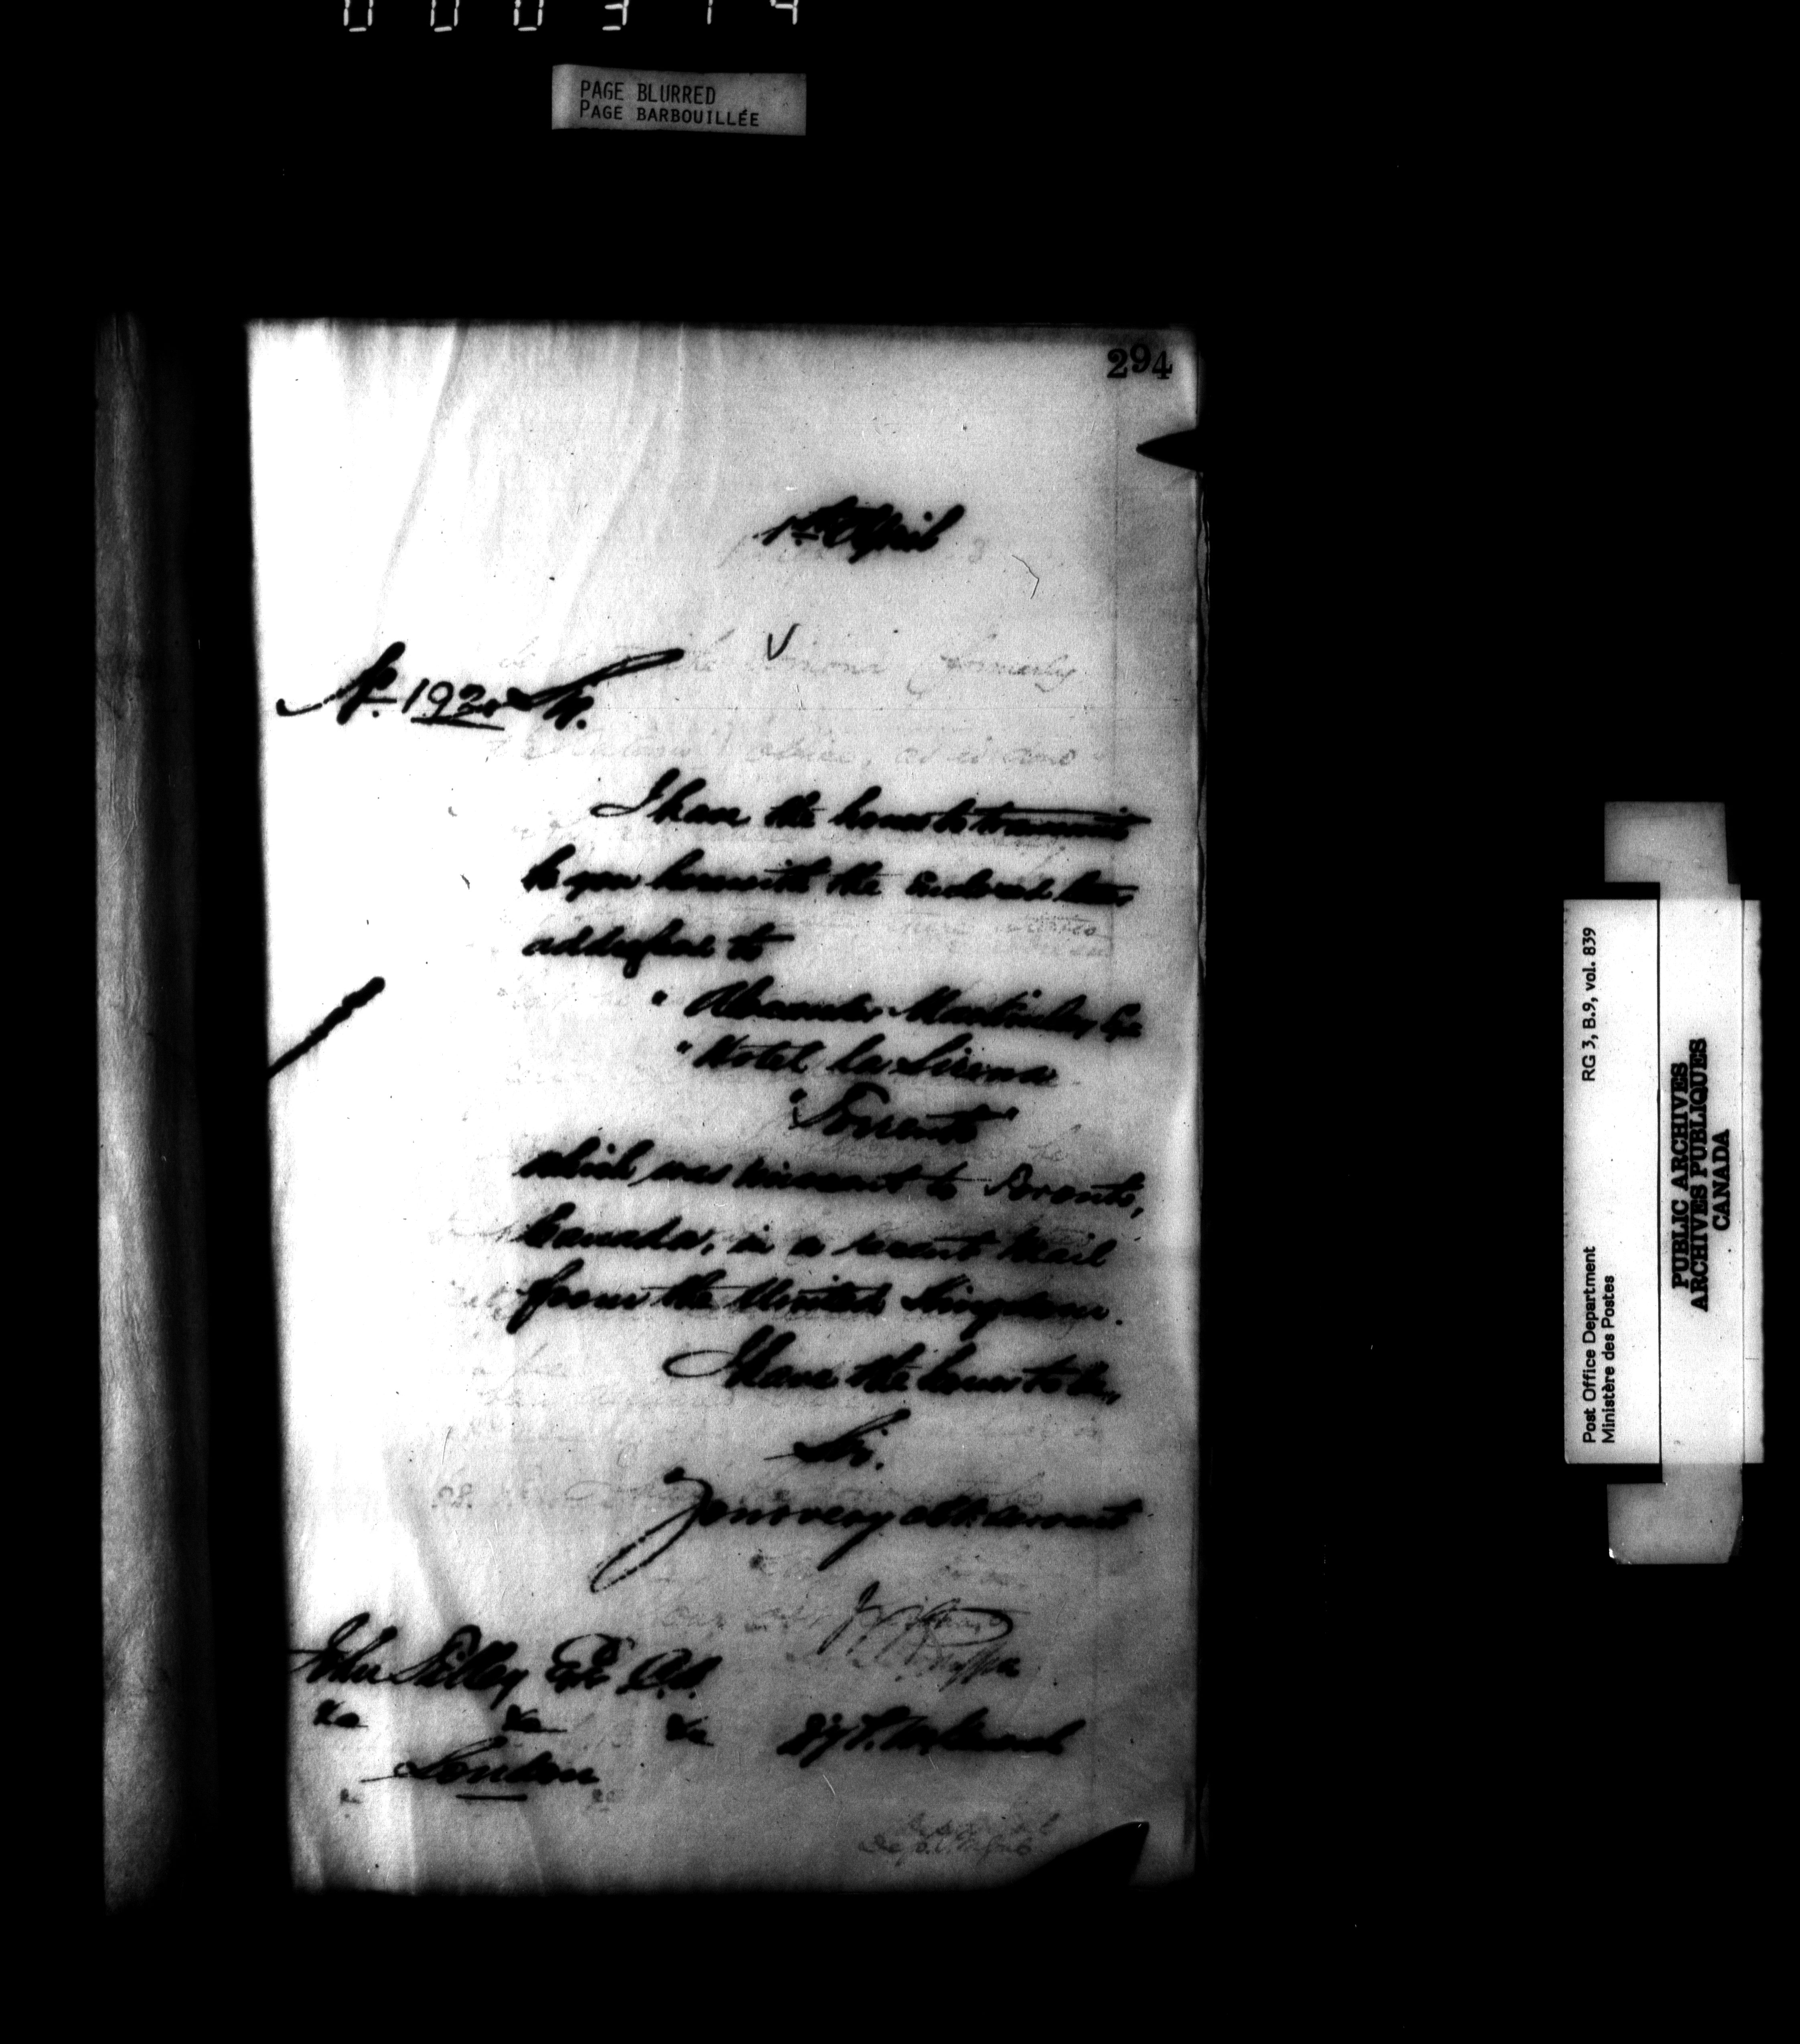 000314
PAGE BLURRED
PAGE BARBOUILLÉE
294
1st April
No. 192
Sir.
I have the honor to transmit
to you herewith the enclosed letter
addressed to
" Alexander Esqr
" Hotel la Sirena
" Sorrento "
which was missent to Toronto,
Canada, in a recent Mail
from the United Kingdom.
I have the honor to be,
Sir.
Your very obt. servant
John Tilley Esqr C.B.
&c &c &c
London
RG 3, B.9, vol. 839
Post Office Department
Ministère des Postes
PUBLIC ARCHIVES
ARCHIVES PUBLIQUES
CANADA